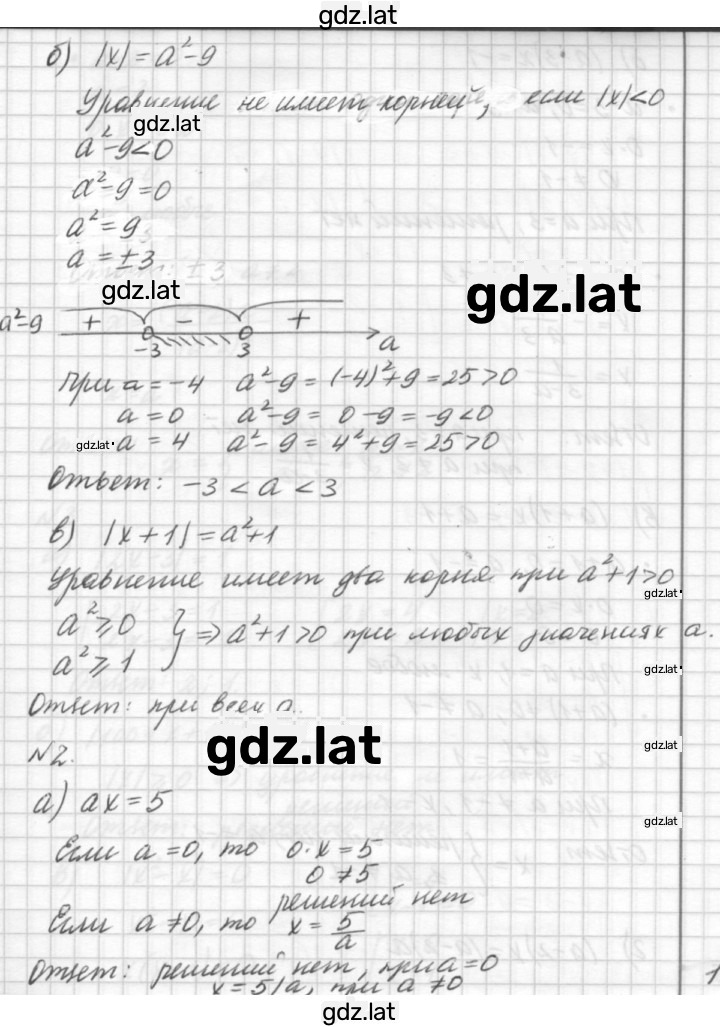 gdz.lat
б) |x| = a²-9
Уравнение не имеет корней, если |x|<0
gdz.lat
a²-9<0
a²-9=0
a²=9
a=±3
gdz.lat
gdz.lat
a²-9 + - +
-3 3 a
при a=-4 a²-9=(-4)²+9=25>0
a=0 a²-9= 0-9=-9<0
gdz.lat a=4 a²-9=4²+9=25>0
Ответ: -3<a<3
в) |x+1|=a²+1
Уравнение имеет два корня при a²+1>0
gdz.lat
a²⩾0
a²⩾1 } ⇒ a²+1>0 при любых значениях a.
gdz.lat
Ответ: при всех a.
gdz.lat
gdz.lat
№2.
а) ax=5
gdz.lat
Если a=0, то 0·x=5
0≠5
решений нет
Если a≠0, то x=5/a
Ответ: решений нет, при a=0
x=5/a, при a≠0
1
gdz.lat